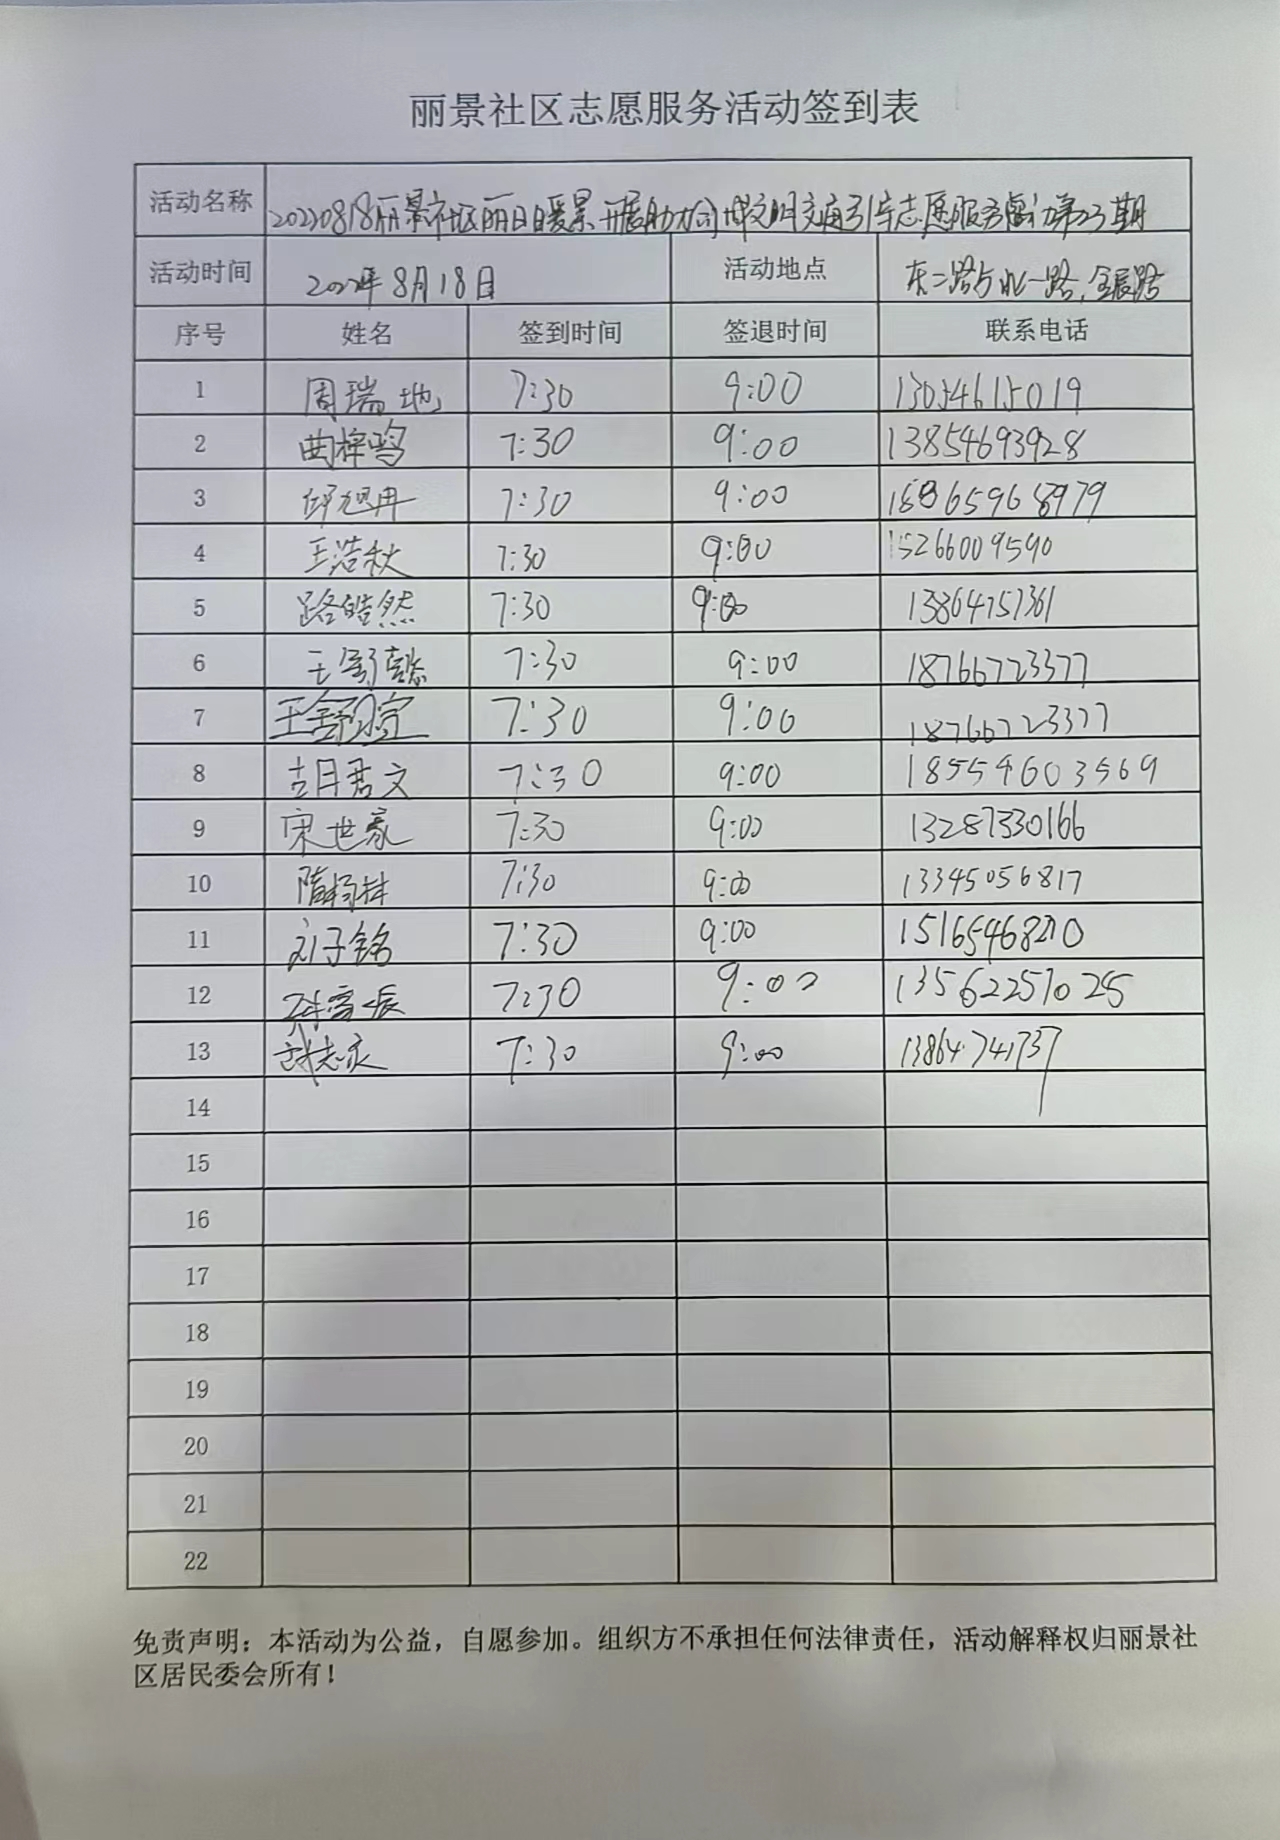 丽景社区志愿服务活动签到表
活动名称 20220818丽景社区丽日暖景 开展助力 文明交通引导志愿服务活动第23期
活动时间 2022年8月18日 活动地点 东二路与北一路,金辰路
序号 姓名 签到时间 签退时间 联系电话
1 周瑞地 7:30 9:00 13054615019
2 曲梓鸣 7:30 9:00 13854693928
3 邱旭冉 7:30 9:00 18865968979
4 王浩秋 7:30 9:00 15266009590
5 路皓然 7:30 9:00 13864757361
6 王舒懿 7:30 9:00 18766723377
7 王舒宜 7:30 9:00 18766723377
8 胡君文 7:30 9:00 18554603569
9 宋世豪 7:30 9:00 13287330166
10 隋杨林 7:30 9:00 13345056817
11 刘子铭 7:30 9:00 15165468210
12 7:30 9:00 13562257025
13 7:30 9:00 13864741737
14
15
16
17
18
19
20
21
22
免责声明：本活动为公益，自愿参加。组织方不承担任何法律责任，活动解释权归丽景社
区居民委会所有！